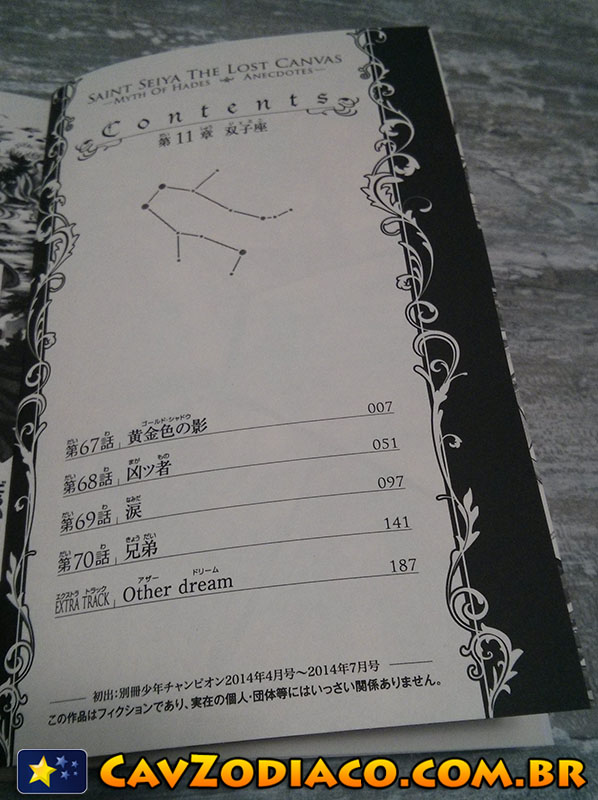 SAINT SEIYA THE LOST CANVAS
—MYTH OF HADES ANECDOTES—
Contents
第11章 双子座
第67話 黄金色の影 007
第68話 凶ッ者 051
第69話 涙 097
第70話 兄弟 141
EXTRA TRACK Other dream 187
初出:別冊少年チャンピオン2014年4月号〜2014年7月号
この作品はフィクションであり、実在の個人・団体等にはいっさい関係ありません。
CAVZODIACO.COM.BR